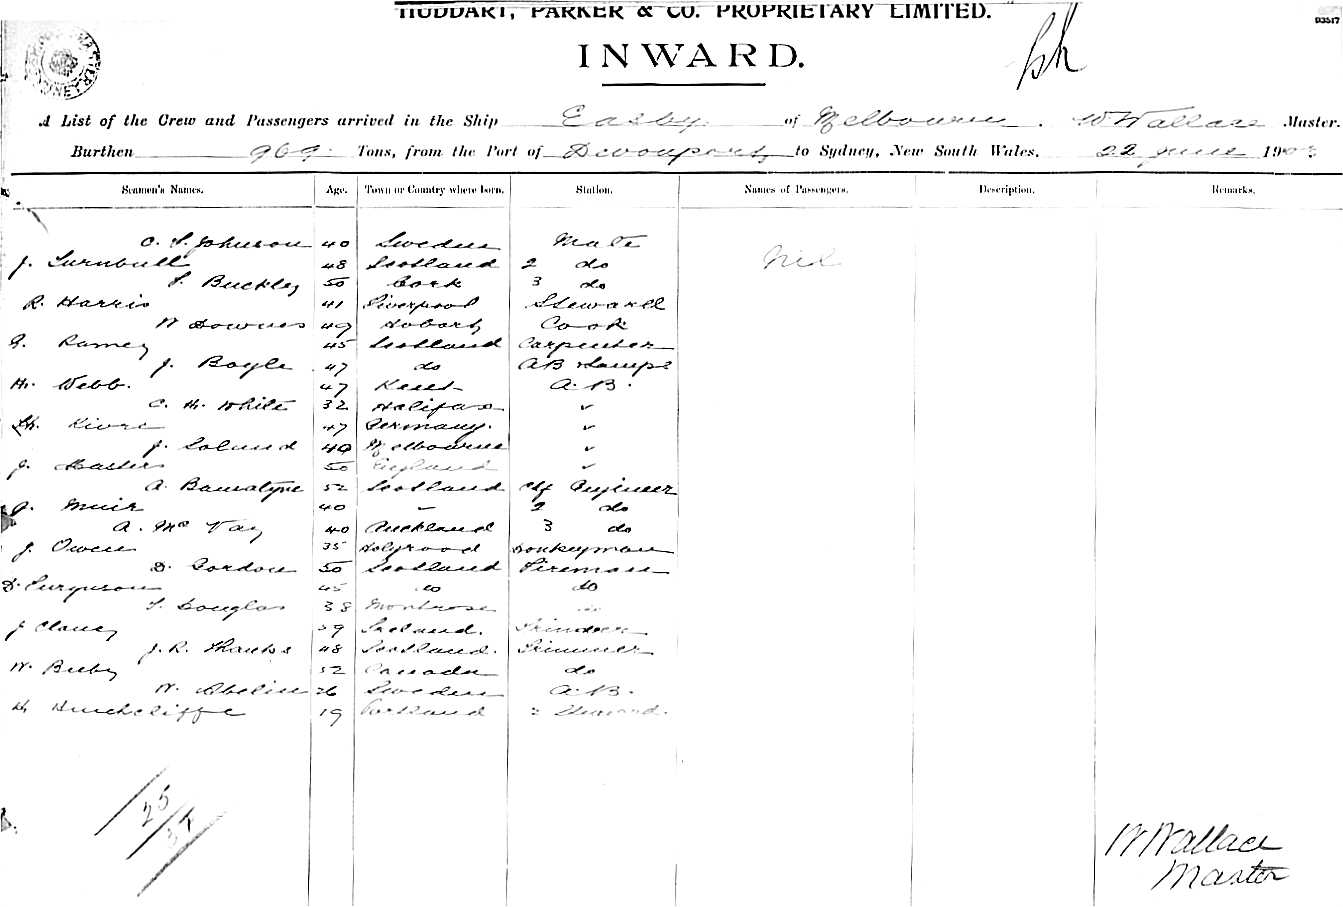 HUDDART, PARKER & CO. PROPRIETARY LIMITED.
03517
INWARD.
A List of the Crew and Passengers arrived in the Ship Easby of Melbourne. W Wallace Master.
Burthen 969 Tons, from the Port of Devonport to Sydney, New South Wales. 22 June 1903
Seamen's Names. Age. Town or Country where born. Station. Names of Passengers. Description. Remarks.
C. S. Johnson 40 Sweden Mate
J. Turnbull 48 Scotland 2 do Nil
S. Buckley 50 Cork 3 do
R. Harris 41 Liverpool Steward
W Downes 49 Hobart Cook
G. Ramey 45 Scotland Carpenter
J. Boyle 47 do AB Lamps
H. Webb. 47 Kent A.B.
C. H. White 32 Halifax "
47 Germany. "
J. Solund 40 Melbourne "
J. Masters 50 England "
A. Bannatyne 52 Scotland Chf Engineer
G. Muir 40 " 2 do
A. Mc Vay 40 Auckland 3 do
J. Owen 35 Holyrood Donkeyman
D. Gordon 50 Scotland Fireman
D. Furguson 45 do do
T. Douglas 38 Montrose do
J Clancy 39 Ireland.
J. R. Shanks 48 Scotland. Trimmer
W. 52 Canada do
W. Abelin 26 Sweden A.B.
H Hinchcliffe 19 Portland 2 Steward.
25
W Wallace
Master